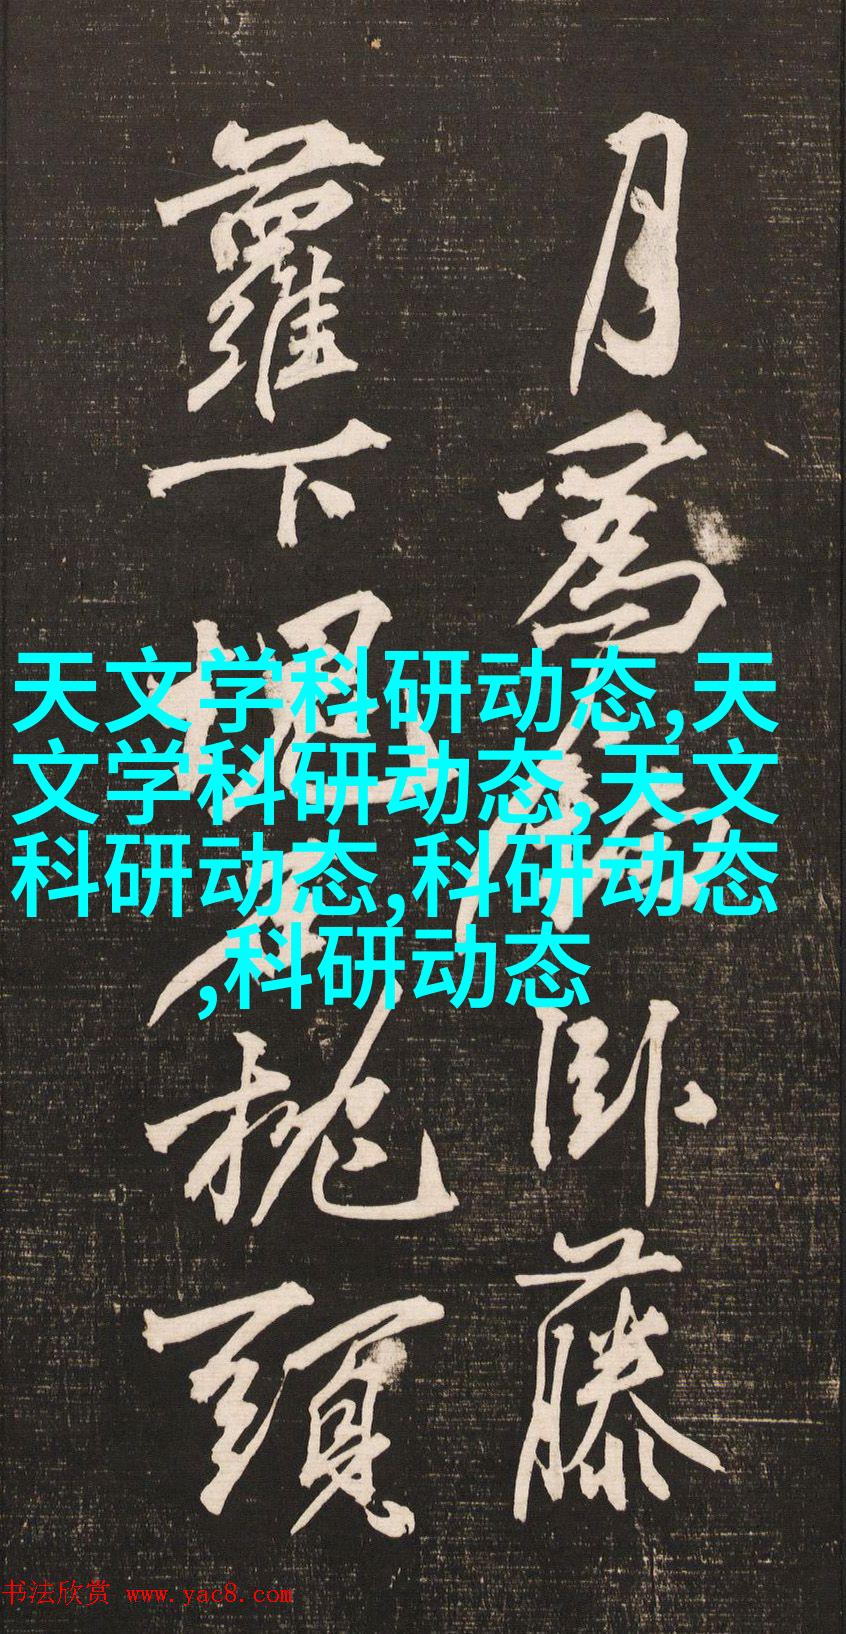 月爲卧藤
蘿下枕頭
天文学科研动态,天
文学科研动态,天文
科研动态,科研动态
,科研动态
书法欣赏 www.yac8.com